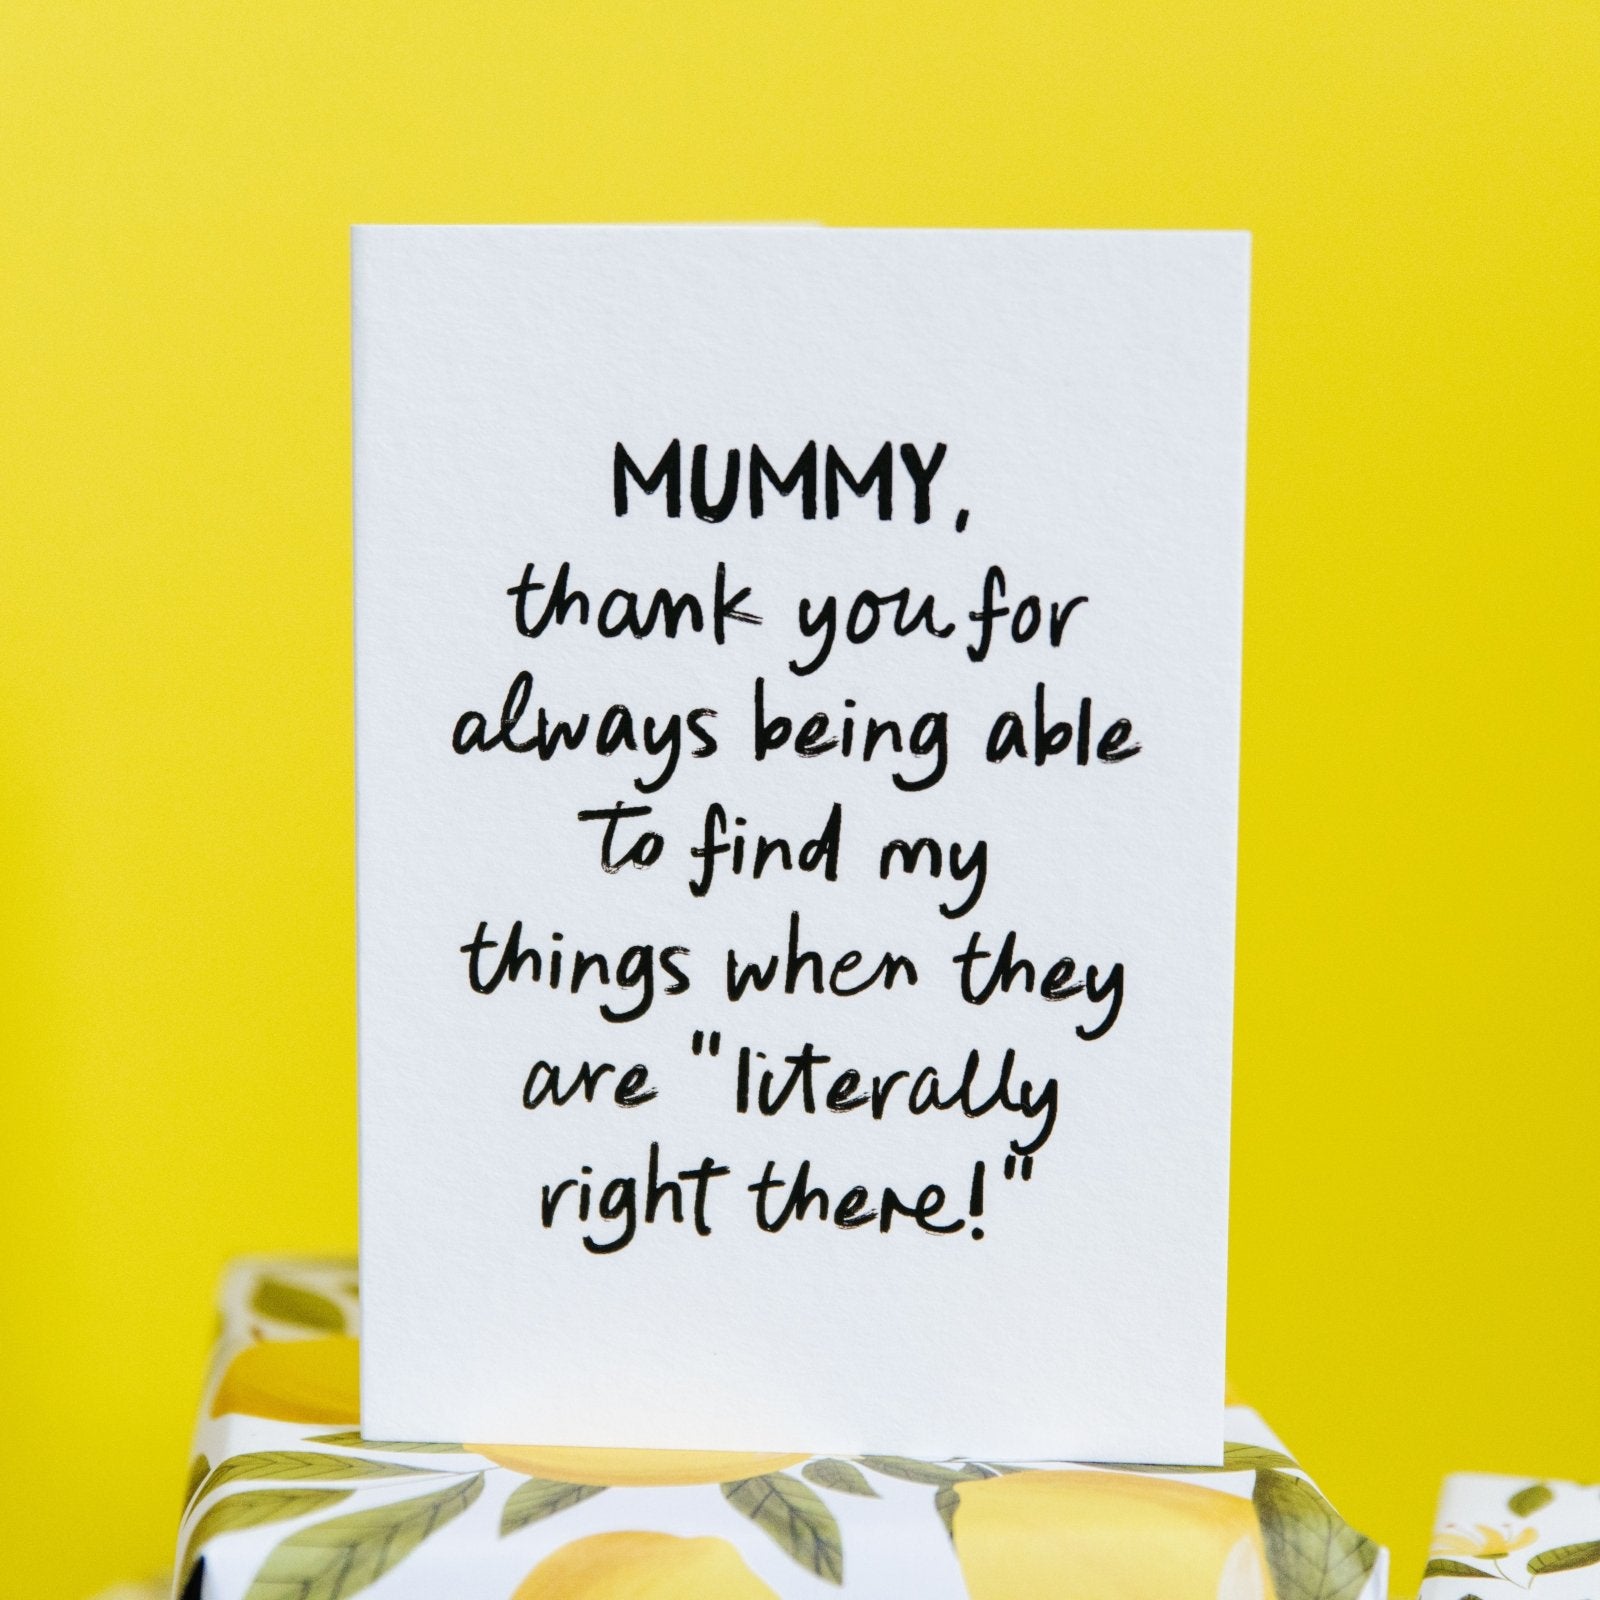 MUMMY,
thank you for
always being able
to find my
things when they
are "literally
right there!"